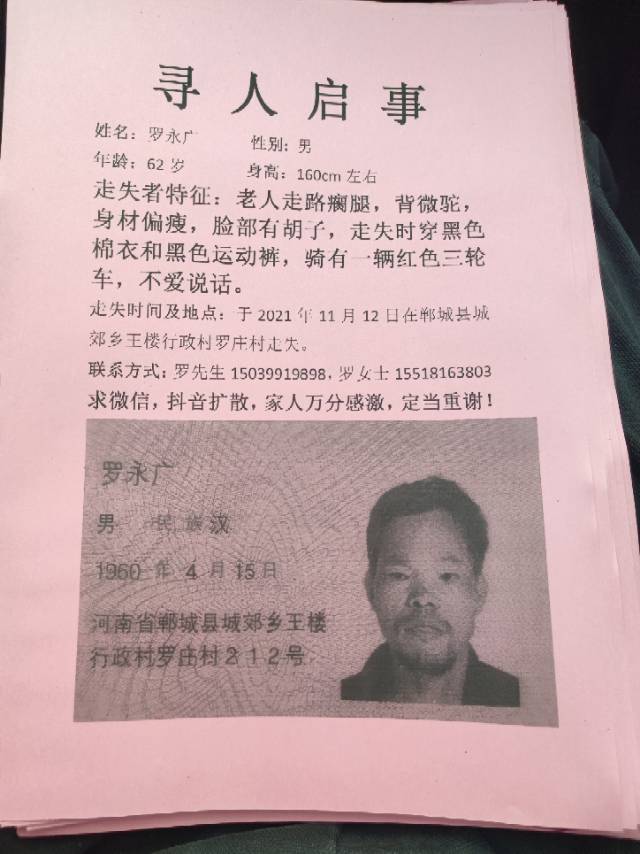 寻人启事
姓名：罗永广 性别：男
年龄：62岁 身高：160cm左右
走失者特征：老人走路瘸腿，背微驼，
身材偏瘦，脸部有胡子，走失时穿黑色
棉衣和黑色运动裤，骑有一辆红色三轮
车，不爱说话。
走失时间及地点：于2021年11月12日在郸城县城
郊乡王楼行政村罗庄村走失。
联系方式：罗先生15039919898，罗女士15518163803
求微信，抖音扩散，家人万分感激，定当重谢！
罗永广
男 民族汉
1960年4月15日
河南省郸城县城郊乡王楼
行政村罗庄村212号